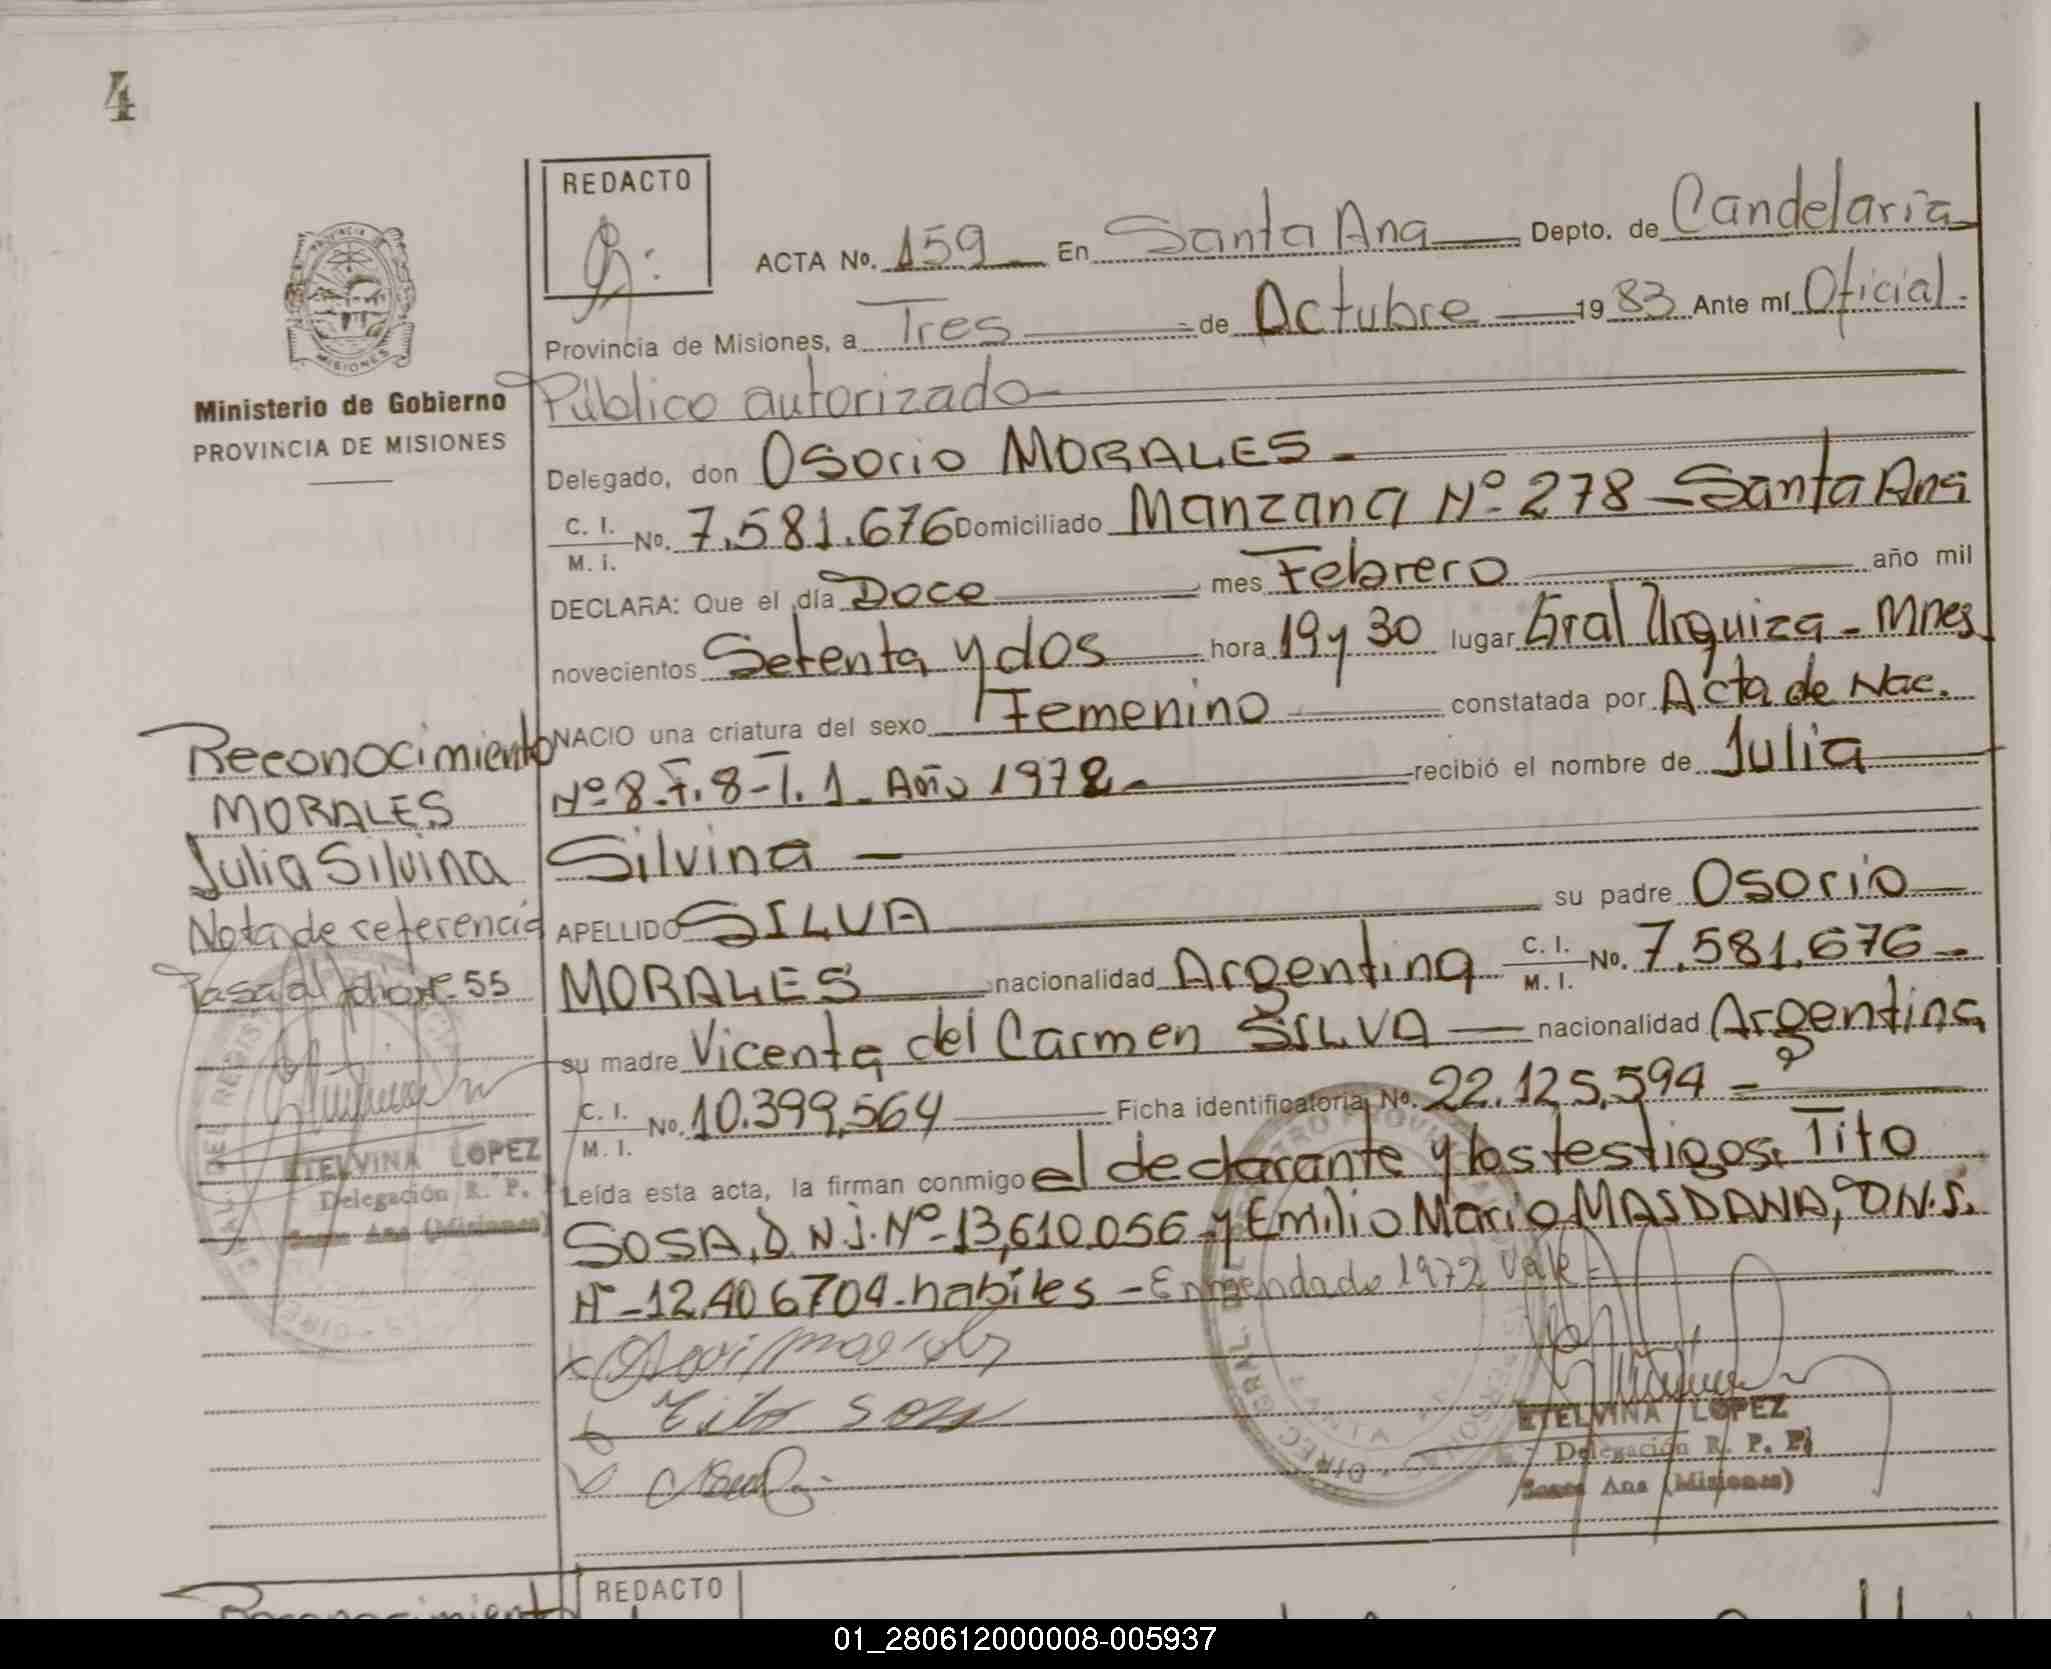 4
REDACTO
ACTA No. 159 En Santa Ana Depto. de Candelaria
Provincia de Misiones, a Tres de Octubre 1983 Ante mí Oficial
Público autorizado
Delegado, don Osorio MORALES
C. I. M. I. No. 7.581.676 Domiciliado Manzana Nº 278 - Santa Ana
DECLARA: Que el día Doce mes Febrero año mil
novecientos Setenta y dos hora 19 y 30 lugar Gral Urquiza - Mnes
NACIO una criatura del sexo Femenino constatada por Acta de Nac.
Nº 8-F. 8-T. 1- Año 1972 recibió el nombre de Julia
Silvina
APELLIDO SILVA su padre Osorio
MORALES nacionalidad Argentina C. I. M. I. No. 7.581.676
su madre Vicenta del Carmen SILVA nacionalidad Argentina
C. I. M. I. No. 10.399.564 Ficha identificatoria No. 22.125.594
Leída esta acta, la firman conmigo el declarante y los testigos: Tito
SOSA, D.N.I. Nº 13,610.056 y Emilio Mario MASDANA, D.N.I.
Nº 12.406704. habiles - Enmendado 1972 Vale
Tito Sosa
ETELVINA LOPEZ
Delegación R. P. P.
Santa Ana (Misiones)
PROVINCIA DE
MISIONES
Ministerio de Gobierno
PROVINCIA DE MISIONES
Reconocimiento
MORALES
Julia Silvina
Nota de referencia
Pasa al folio Nº 55
ETELVINA LOPEZ
Delegación R. P.
Santa Ana (Misiones)
Reconocimiento
REDACTO
01_280612000008-005937